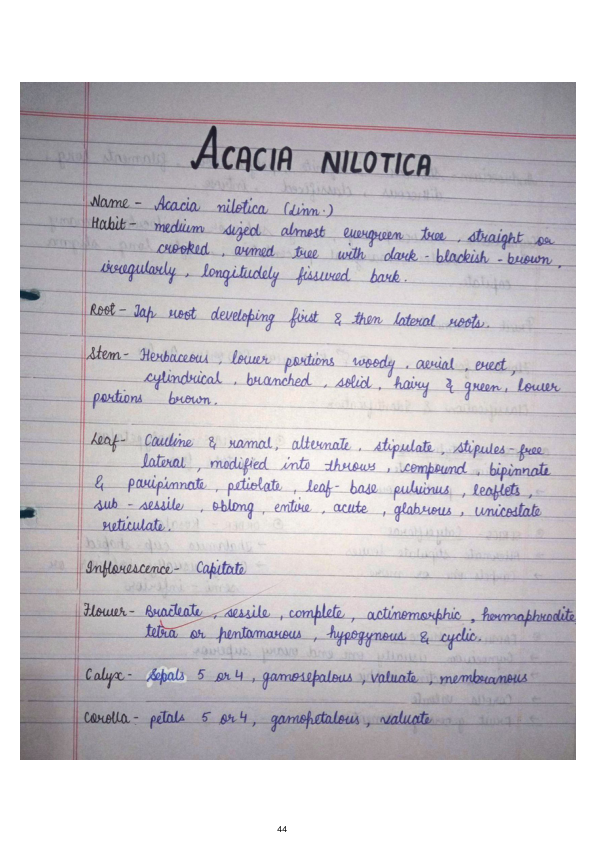 ACACIA NILOTICA
Name - Acacia nilotica (Linn.)
Habit - medium sized almost evergreen tree, straight or
crooked, armed tree with dark - blackish - brown,
irregularly, longitudely fissured bark.
Root - Tap root developing first & then lateral roots.
Stem - Herbaceous lower portions woody, aerial, erect,
cylindrical, branched, solid, hairy & green, lower
portions brown.
Leaf - Cauline & ramal, alternate, stipulate, stipules - free
lateral, modified into throws, compound, bipinnate
& paripinnate, petiolate, leaf - base pulvinus, leaflets,
sub - sessile, oblong, entire, acute, glabrous, unicostate
reticulate.
Inflorescence - Capitate
Flower - Bracteate, sessile, complete, actinomorphic, hermaphrodite
tetra or pentamarous, hypogynous & cyclic.
Calyx - Sepals 5 or 4, gamosepalous, valuate, membranous
Corolla - petals 5 or 4, gamopetalous, valuate
44